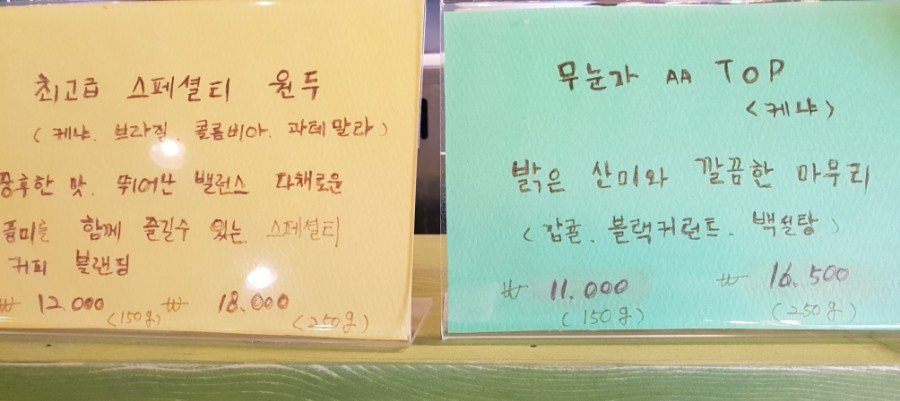 최고급 스페셜티 원두
(케냐. 브라질. 콜롬비아. 과테말라)
중후한 맛. 뛰어난 밸런스 다채로운
풍미를 함께 즐길수 있는 스페셜티
커피 블랜딩
₩ 12.000 ₩ 18.000
(150g) (250g)
무눈가 AA TOP
<케냐>
밝은 산미와 깔끔한 마무리
(감귤. 블랙커런트. 백설탕)
₩ 11.000 ₩ 16.500
(150g) (250g)